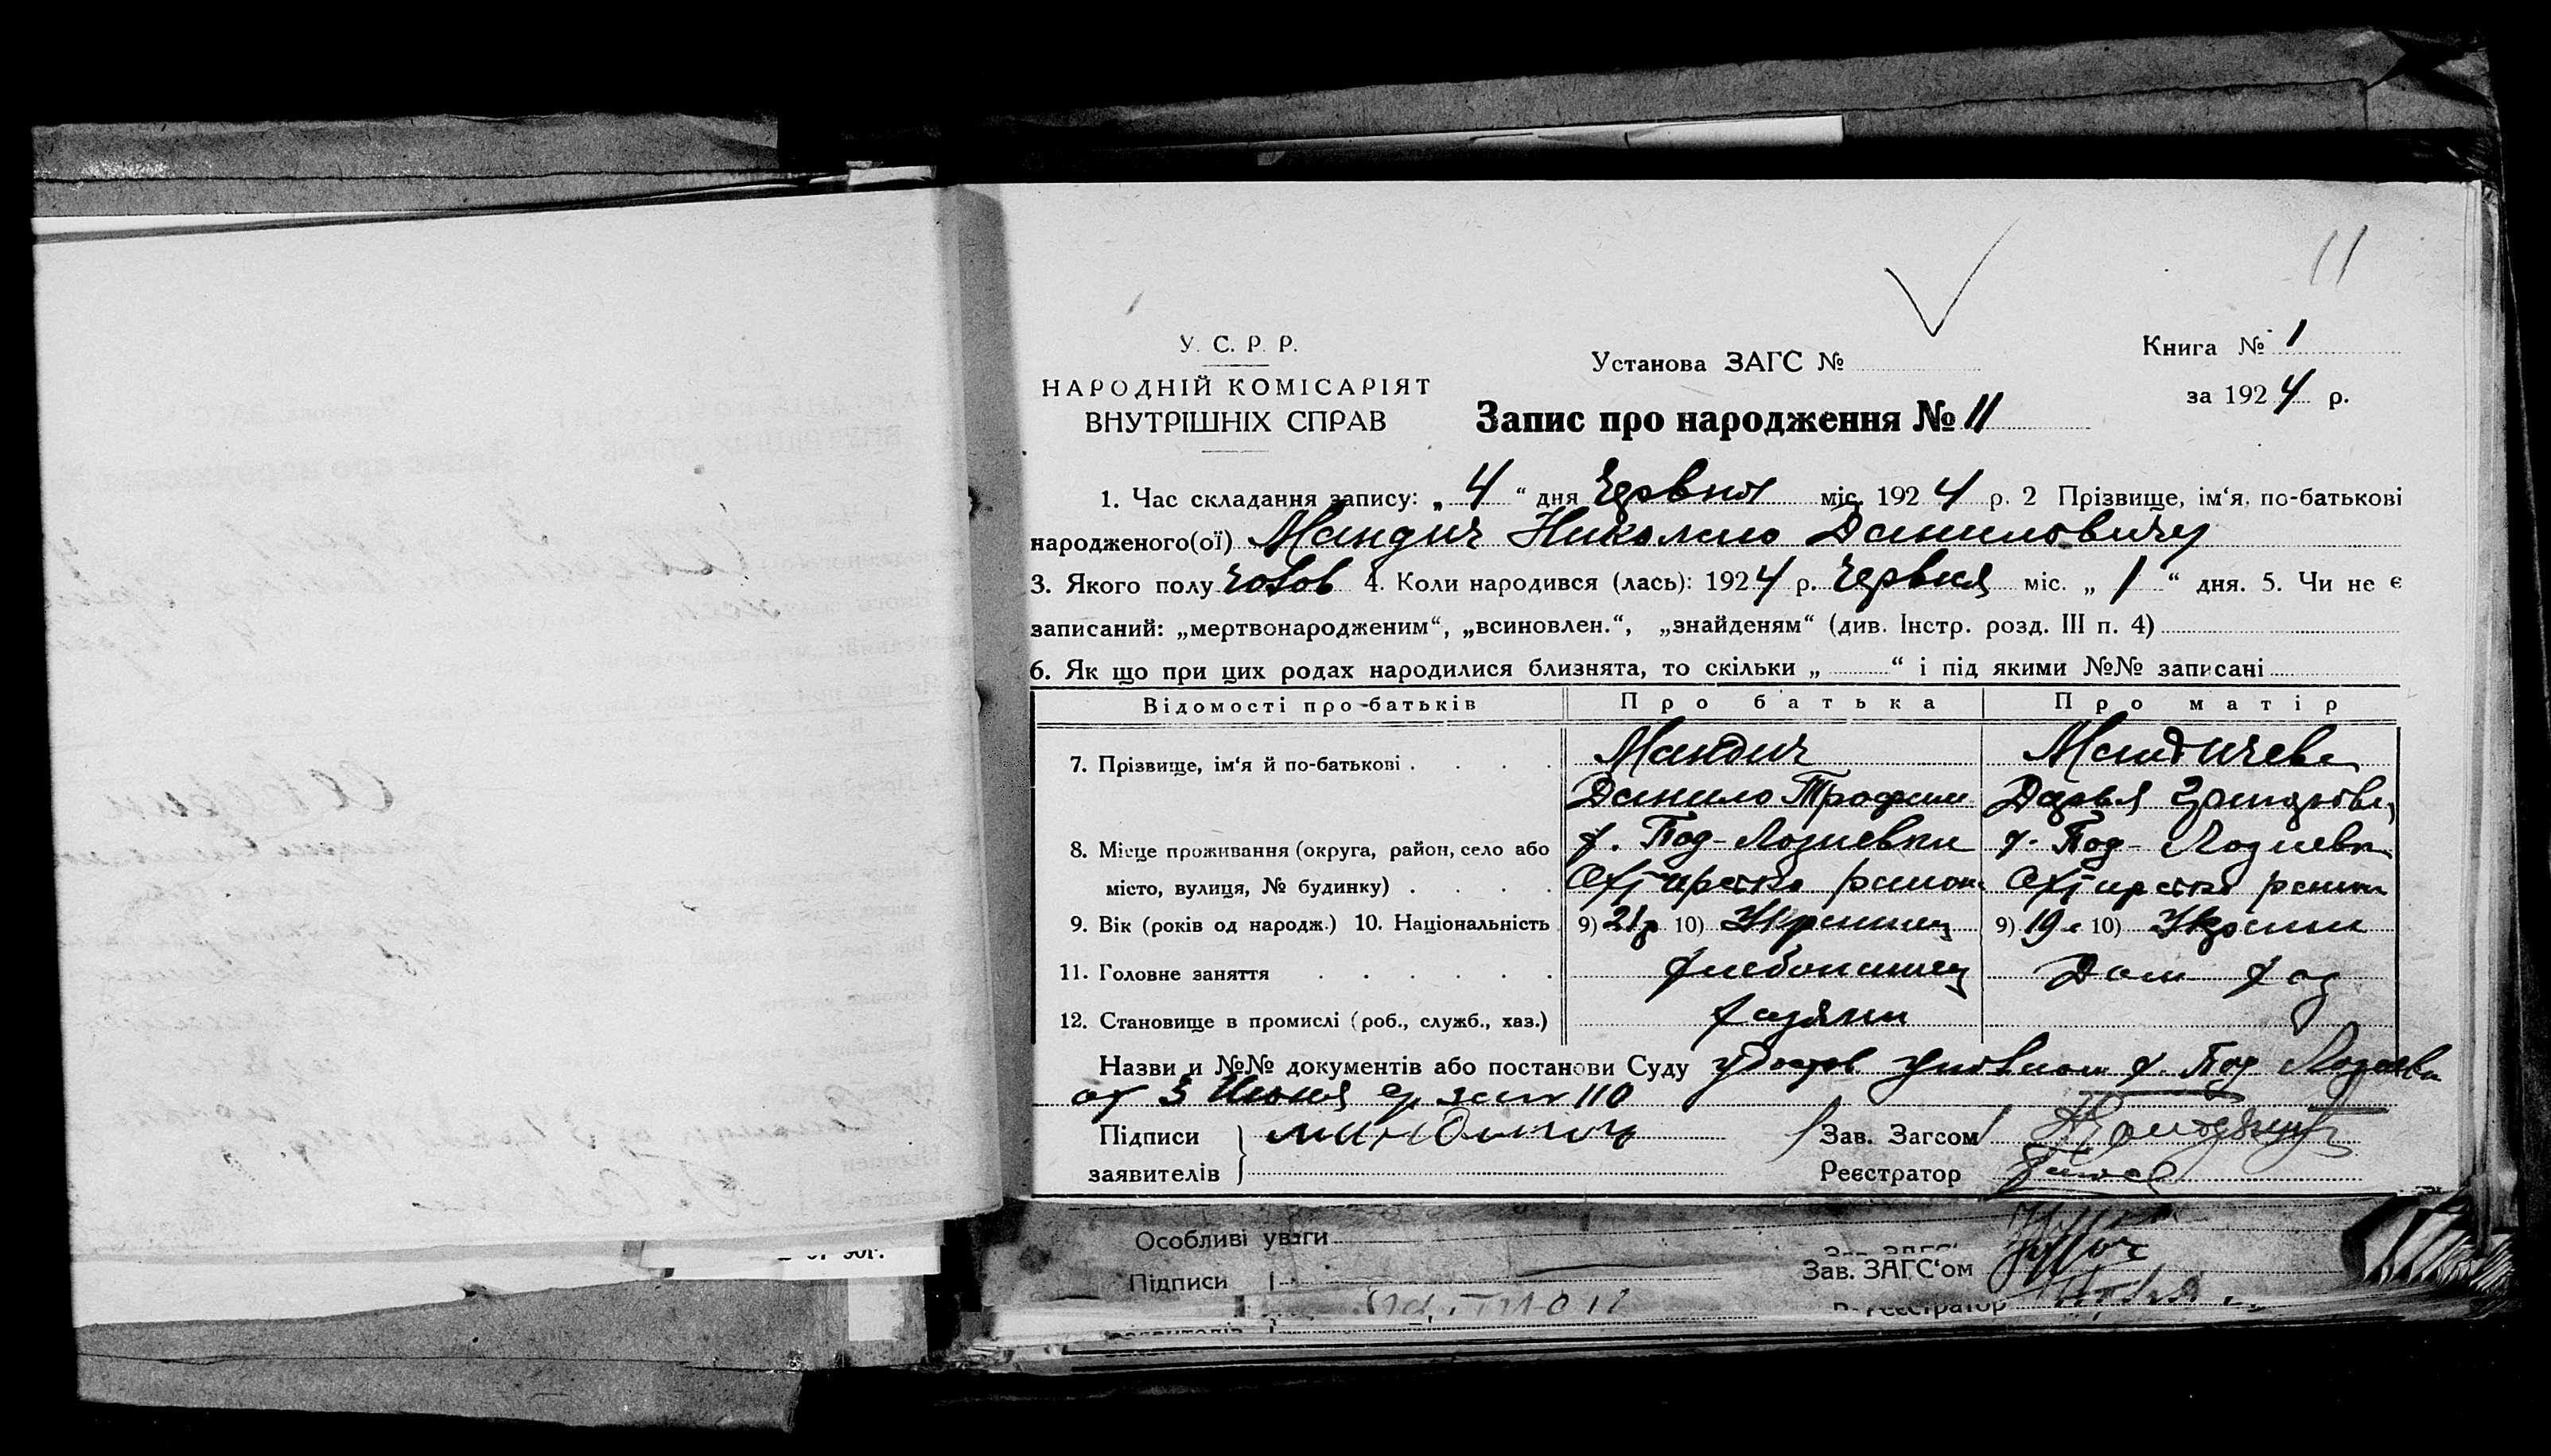 11
У. С. Р. Р.
НАРОДНІЙ КОМІСАРІЯТ
ВНУТРІШНІХ СПРАВ
Установа ЗАГС №
Запис про народження № 11
Книга № 1
за 1924 р.
1. Час складання запису: „ 4 “ дня Червня міс. 1924 р. 2 Прізвище, ім‘я, по-батькові
народженого(ої) Мандич Николаю Даниловичу
3. Якого полу чолов 4. Коли народився (лась): 1924 р. Червня міс. „ 1 “ дня. 5. Чи не є
записаний: „мертвонародженим“, „всиновлен.“, „знайденям“ (див. Інстр. розд. III п. 4)
6. Як що при цих родах народилися близнята, то скільки „ “ і під якими №№ записані
Відомості про-батьків Про батька Про матір
7. Прізвище, ім‘я й по-батькові Мандич Мандичева
Данило Трофим Дарья
8. Місце проживання (округа, район, село або х. Под-Лозиевка х. Под-Лозиевка
місто, вулиця, № будинку) район район
9. Вік (років од народж.) 10. Національність 9) 21р 10) Украинец 9) 19 10) Украин
11. Головне заняття хлебопашец Дом хоз
12. Становище в промислі (роб., служб., хаз.) хазяин
Назви и №№ документів або постанови Суду удостов х. Под
от 3 Июня 110
Підписи Зав. Загсом
заявителів Реєстратор
Особливі уваги
Зав. ЗАГС‘ом
Підписи
реєстратор